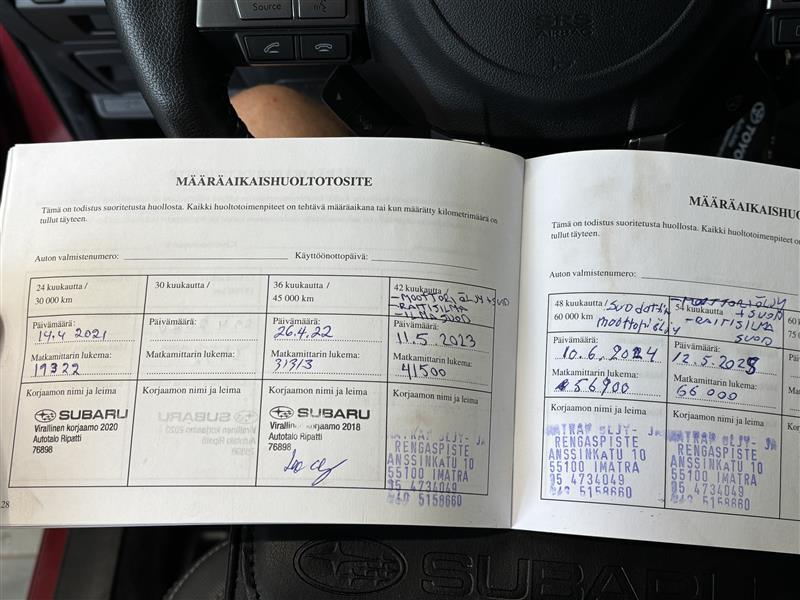 Source
SRS
AIRBAG
TOYO
MÄÄRÄAIKAISHUOLTOTOSITE
Tämä on todistus suoritetusta huollosta. Kaikki huoltotoimenpiteet on tehtävä määräaikana tai kun määrätty kilometrimäärä on
tullut täyteen.
Auton valmistenumero:
Käyttöönottopäivä:
24 kuukautta /
30 000 km
Päivämäärä:
14.4 2021
Matkamittarin lukema:
19322
Korjaamon nimi ja leima
SUBARU
Virallinen korjaamo 2020
Autotalo Ripatti
76898
30 kuukautta /
Päivämäärä:
Matkamittarin lukema:
Korjaamon nimi ja leima
36 kuukautta /
45 000 km
Päivämäärä:
26.4.22
Matkamittarin lukema:
31313
Korjaamon nimi ja leima
SUBARU
Virallinen korjaamo 2018
Autotalo Ripatti
76898
42 kuukautta /
-MOOTTORIÖLJY+SUOD
-RAITISILMA
-ILMA SUOD
Päivämäärä:
11.5 2023
Matkamittarin lukema:
41500
Korjaamon nimi ja leima
IMATRAN ÖLJY- JA
RENGASPISTE
ANSSINKATU 10
55100 IMATRA
95 4734049
5158660
28
MÄÄRÄAIKAISHUO
Tämä on todistus suoritetusta huollosta. Kaikki huoltotoimenpiteet on
tullut täyteen.
Auton valmistenumero:
48 kuukautta /
60 000 km
suodatin
moottoriöljy
Päivämäärä:
10.6.2024
Matkamittarin lukema:
56900
Korjaamon nimi ja leima
IMATRAN ÖLJY- JA
RENGASPISTE
ANSSINKATU 10
55100 IMATRA
95 4734049
5158660
54 kuukautta
-MOOTTORIÖLJY
+SUOD
-RAITISILMA
SUOD
Päivämäärä:
12.5 2025
Matkamittarin lukema:
66 000
Korjaamon nimi ja leima
IMATRAN ÖLJY- JA
RENGASPISTE
ANSSINKATU 10
55100 IMATRA
95 4734049
5158660
SUBARU